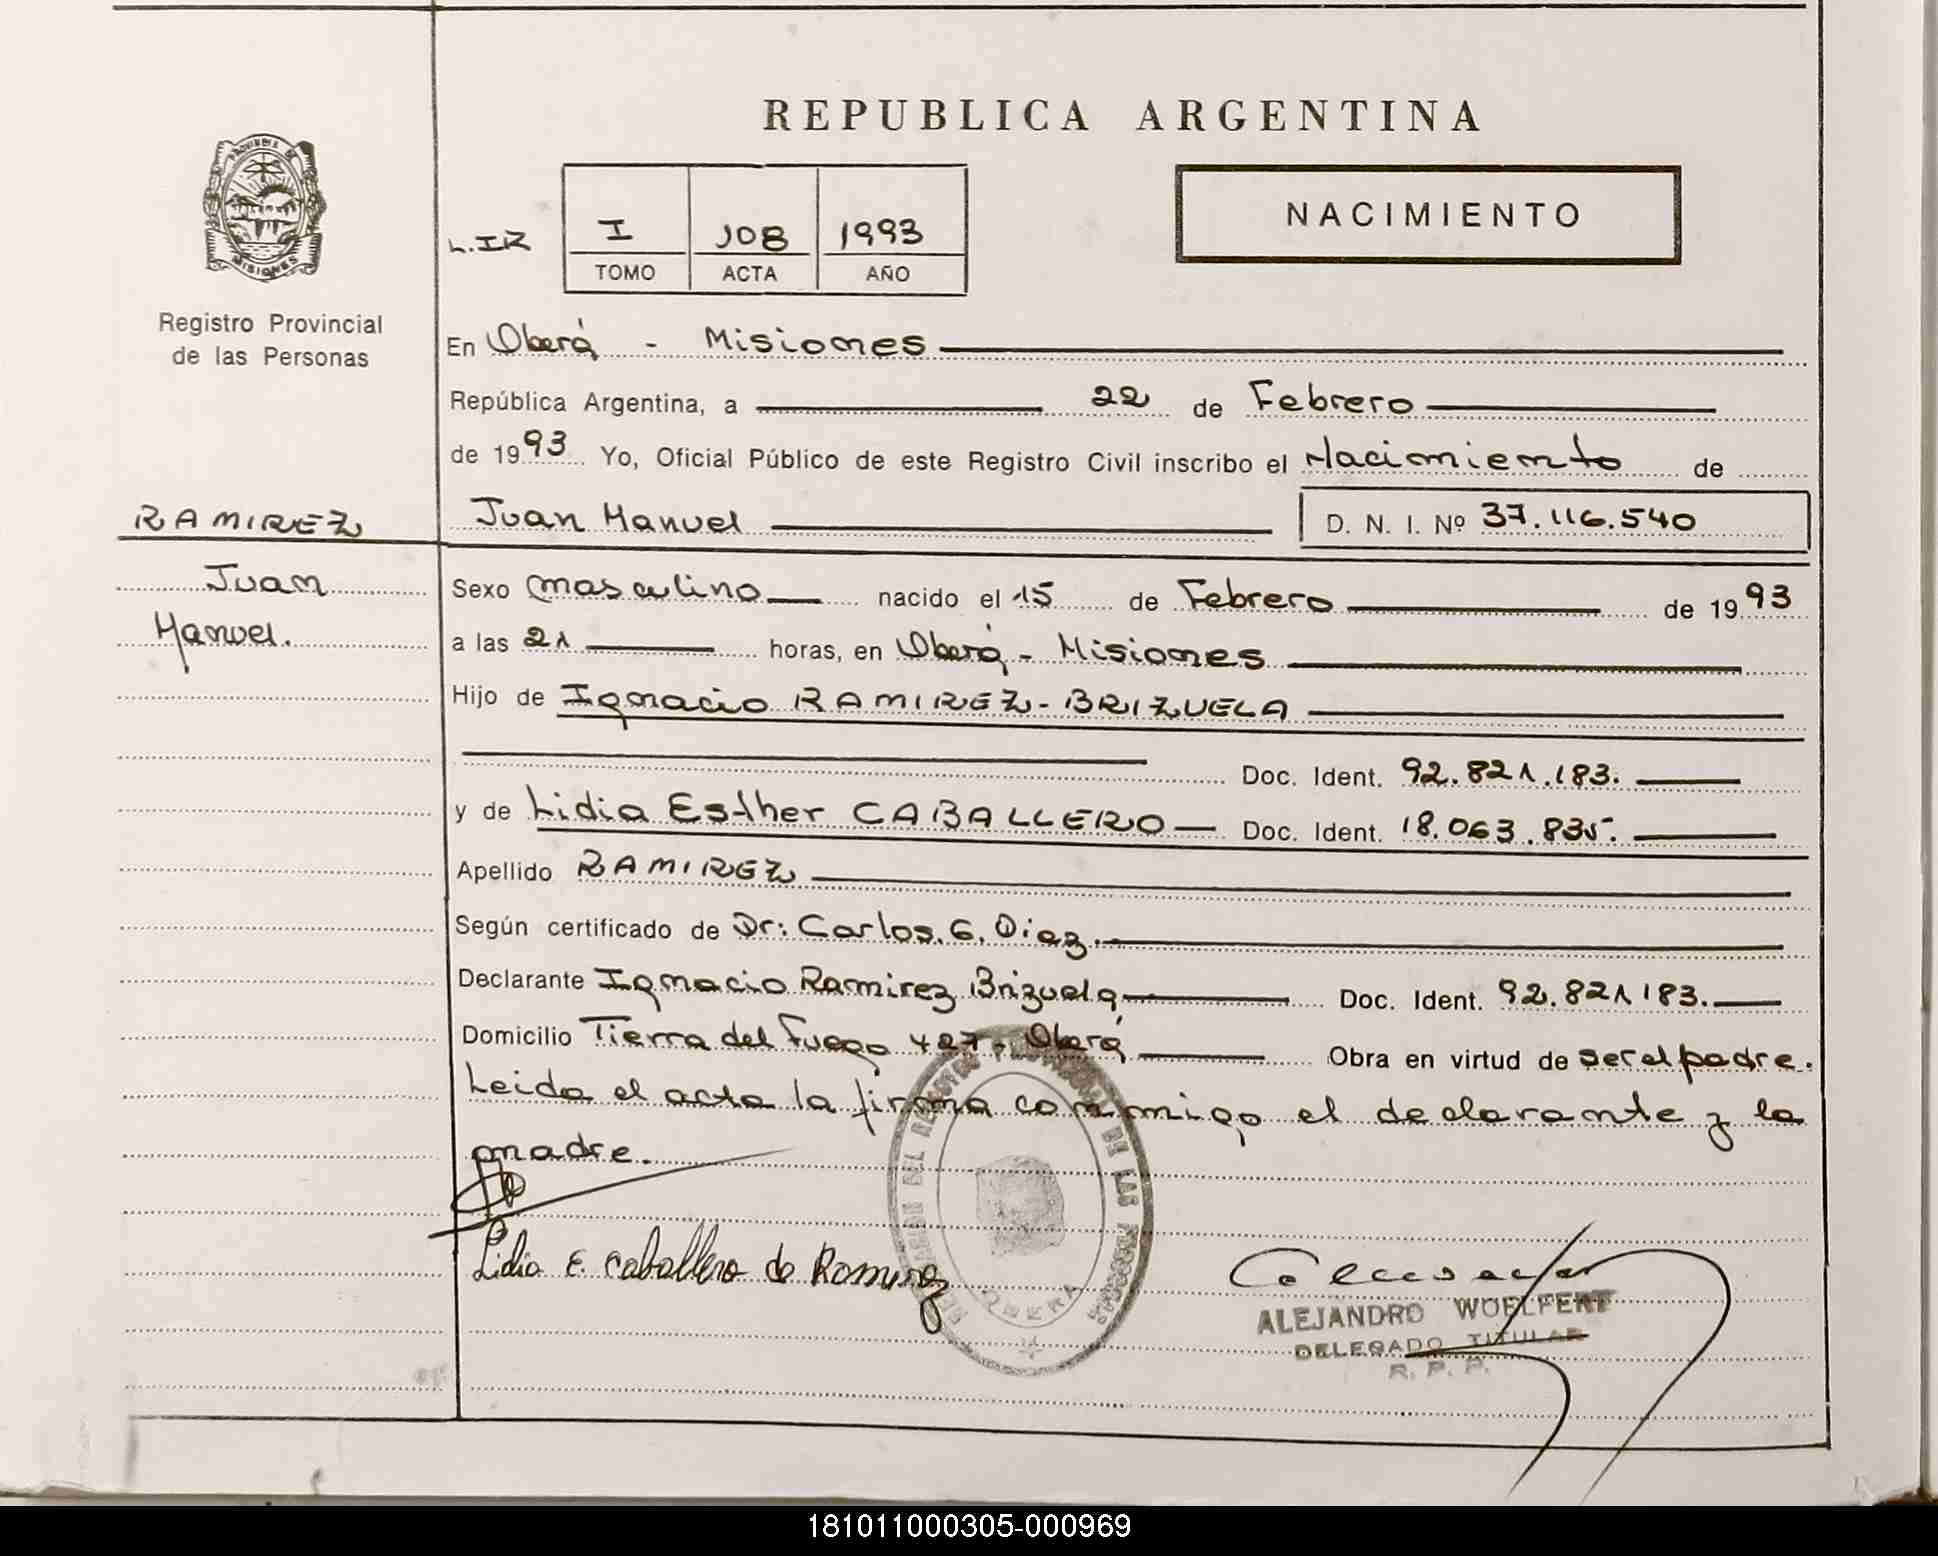 REPUBLICA ARGENTINA
PROVINCIA DE
MISIONES
Registro Provincial
de las Personas
I 108 1993
TOMO ACTA AÑO
NACIMIENTO
En Oberá - Misiones
República Argentina, a 22 de Febrero
de 1993 Yo, Oficial Público de este Registro Civil inscribo el Nacimiento de
RAMIREZ
Juan Manuel D. N. I. Nº 37.116.540
Juan
Manuel.
Sexo masculino nacido el 15 de Febrero de 1993
a las 21 horas, en Oberá - Misiones
Hijo de Ignacio RAMIREZ - BRIZUELA
Doc. Ident. 92.821.183.
y de Lidia Esther CABALLERO Doc. Ident. 18.063.835.
Apellido RAMIREZ
Según certificado de Dr: Carlos. G. Diaz.
Declarante Ignacio Ramirez Brizuela Doc. Ident. 92.821183.
Domicilio Tierra del Fuego 427 - Oberá Obra en virtud de ser el padre.
Leida el acta la firma conmigo el declarante y la
madre.
Lidia E. Caballero de Ramirez
ALEJANDRO WOELFERT
DELEGADO TITULAR
R. P. P.
181011000305-000969